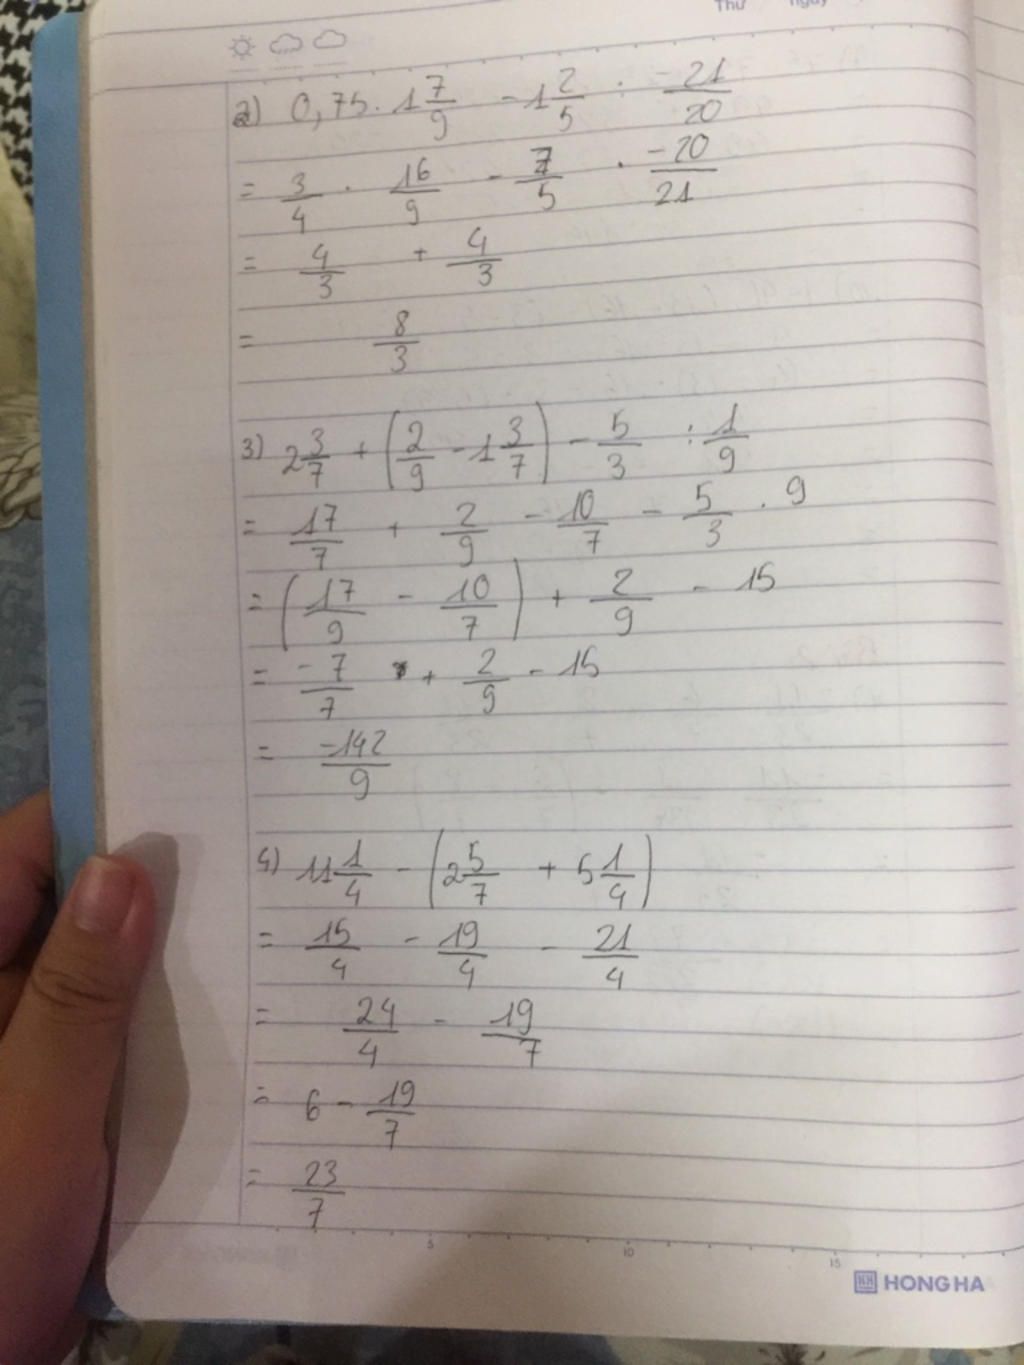 Thứ ngày
2) 0,75 . 1 7/9 - 1 2/5 : -21/20
= 3/4 . 16/9 - 7/5 . -20/21
= 4/3 + 4/3
= 8/3
3) 2 3/7 + (2/9 - 1 3/7) - 5/3 : 1/9
= 17/7 + 2/9 - 10/7 - 5/3 . 9
= (17/9 - 10/7) + 2/9 - 15
= -7/7 + 2/9 - 15
= -142/9
4) 11 1/4 - (2 5/7 + 5 1/4)
= 15/4 - 19/4 - 21/4
= 24/4 - 19/7
= 6 - 19/7
= 23/7
5 10 15
HONG HA